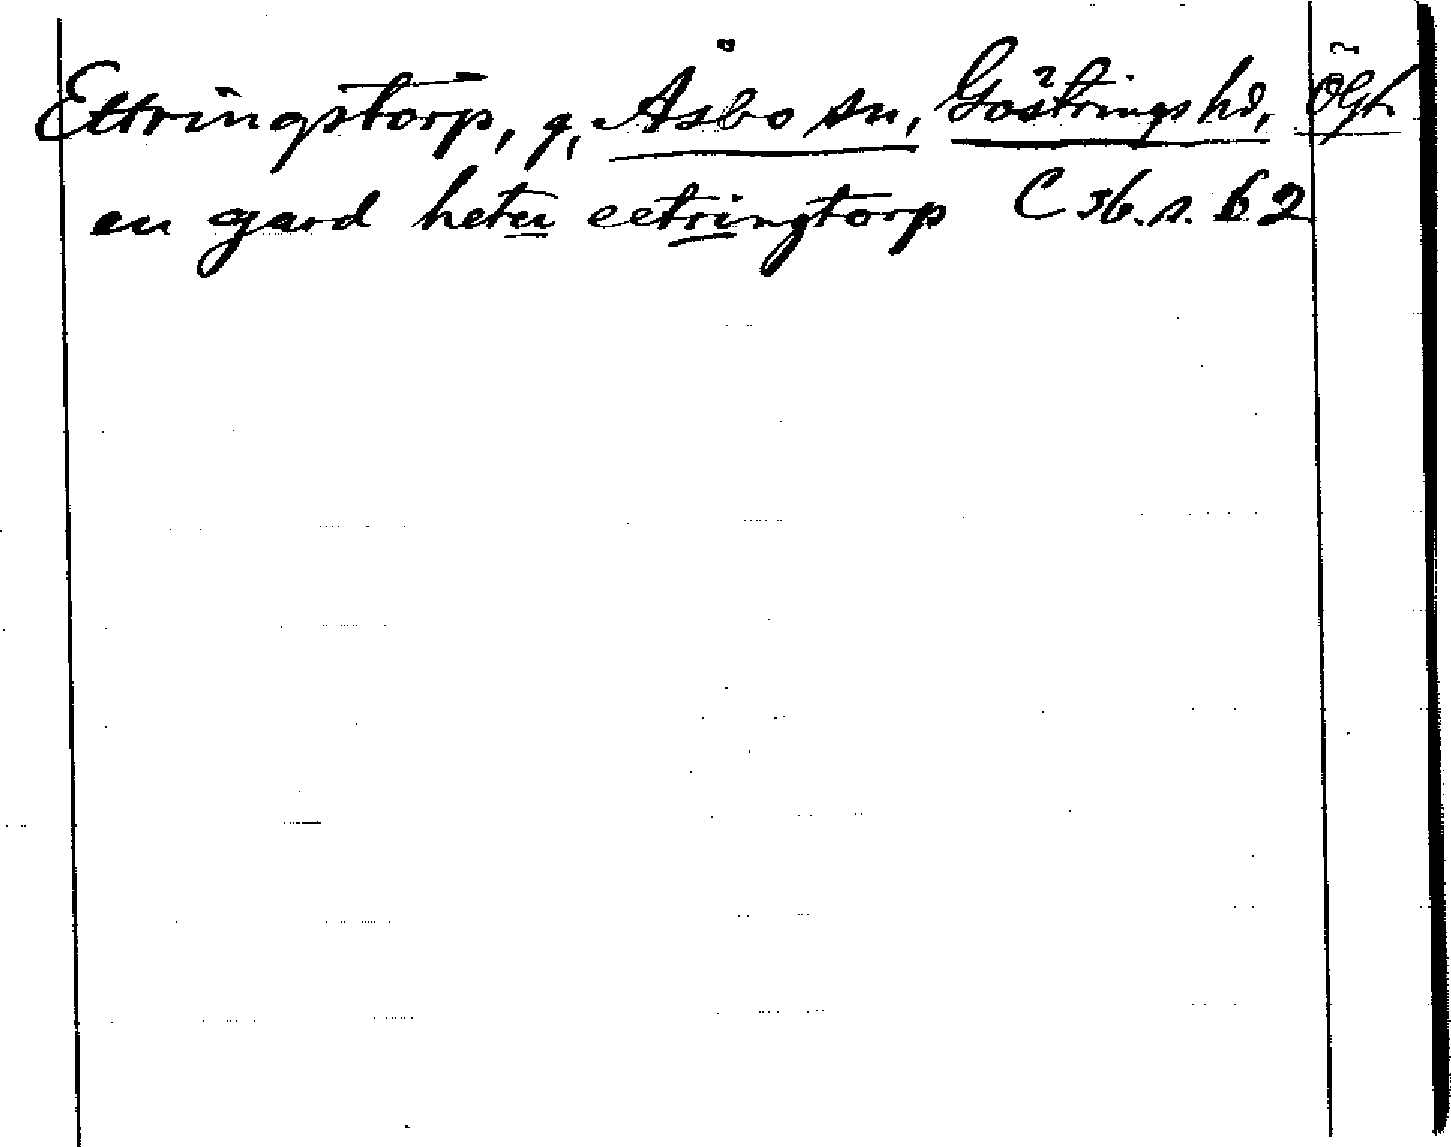 Ettringstorp, g, Åsbo sn, Göstrings hd, Ögl.
en gard heter eetringtorp C 36. s. 62